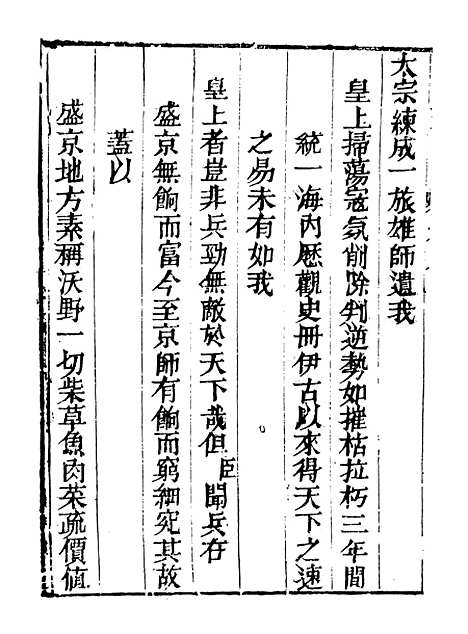 太宗練成一旅雄師遺我
皇上掃蕩寇氛削除判逆勢如摧枯拉朽三年間
統一海內歷觀史冊伊古以來得天下之速
之易未有如我
皇上者豈非兵勁無敵於天下哉但臣聞兵在
盛京無餉而富今至京師有餉而窮細究其故
蓋以
盛京地方素稱沃野一切柴草魚肉菜疏價值